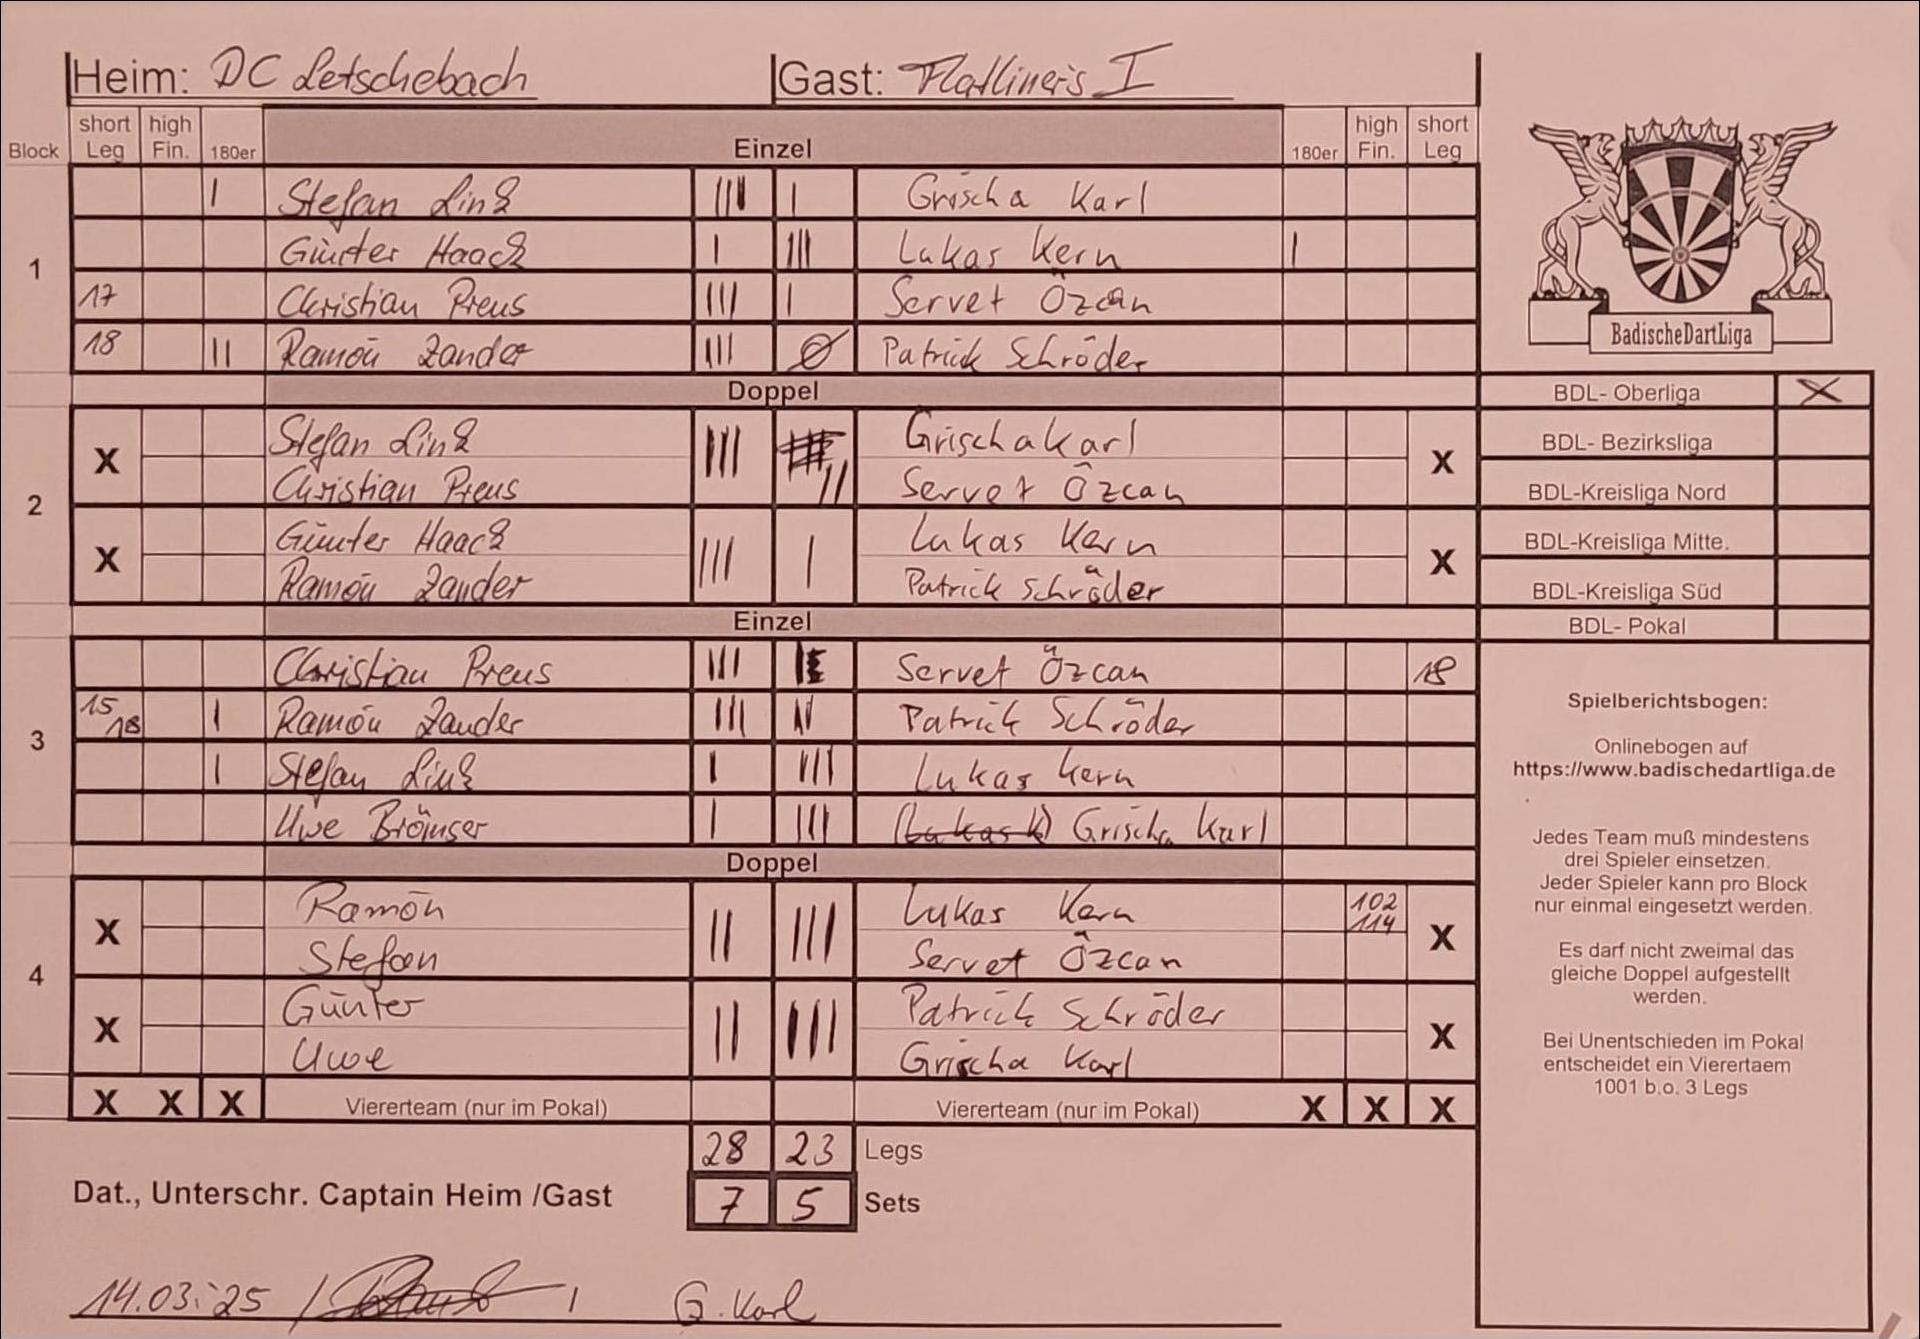 Heim: DC Letschebach Gast: Flatliner's I
Block short Leg high Fin. 180er Einzel 180er high Fin. short Leg
1
I Stefan Link III I Grischa Karl
Günter Haack I III Lukas Kern I
17 Christian Preus III I Servet Özcan
18 II Ramón Zander III Ø Patrick Schröder
BadischeDartLiga
Doppel
2
X Stefan Link III II Grischa Karl X
Christian Preus Servet Özcan
X Günter Haack III I Lukas Kern X
Ramón Zander Patrick Schröder
BDL- Oberliga X
BDL- Bezirksliga
BDL-Kreisliga Nord
BDL-Kreisliga Mitte.
BDL-Kreisliga Süd
BDL- Pokal
Einzel
3
Christian Preus III I Servet Özcan 18
15 18 I Ramón Zander III II Patrick Schröder
I Stefan Link I III Lukas Kern
Uwe Brömser I III (Lukas K) Grischa Karl
Doppel
4
X Ramón II III Lukas Kern 102 X
Stefan Servet Özcan 114
X Günter II III Patrick Schröder X
Uwe Grischa Karl
X X X Viererteam (nur im Pokal) Viererteam (nur im Pokal) X X X
28 23 Legs
Dat., Unterschr. Captain Heim /Gast 7 5 Sets
14.03.25 / / G. Karl
Spielberichtsbogen:
Onlinebogen auf
https://www.badischedartliga.de
Jedes Team muß mindestens
drei Spieler einsetzen.
Jeder Spieler kann pro Block
nur einmal eingesetzt werden.
Es darf nicht zweimal das
gleiche Doppel aufgestellt
werden.
Bei Unentschieden im Pokal
entscheidet ein Vierertaem
1001 b.o. 3 Legs